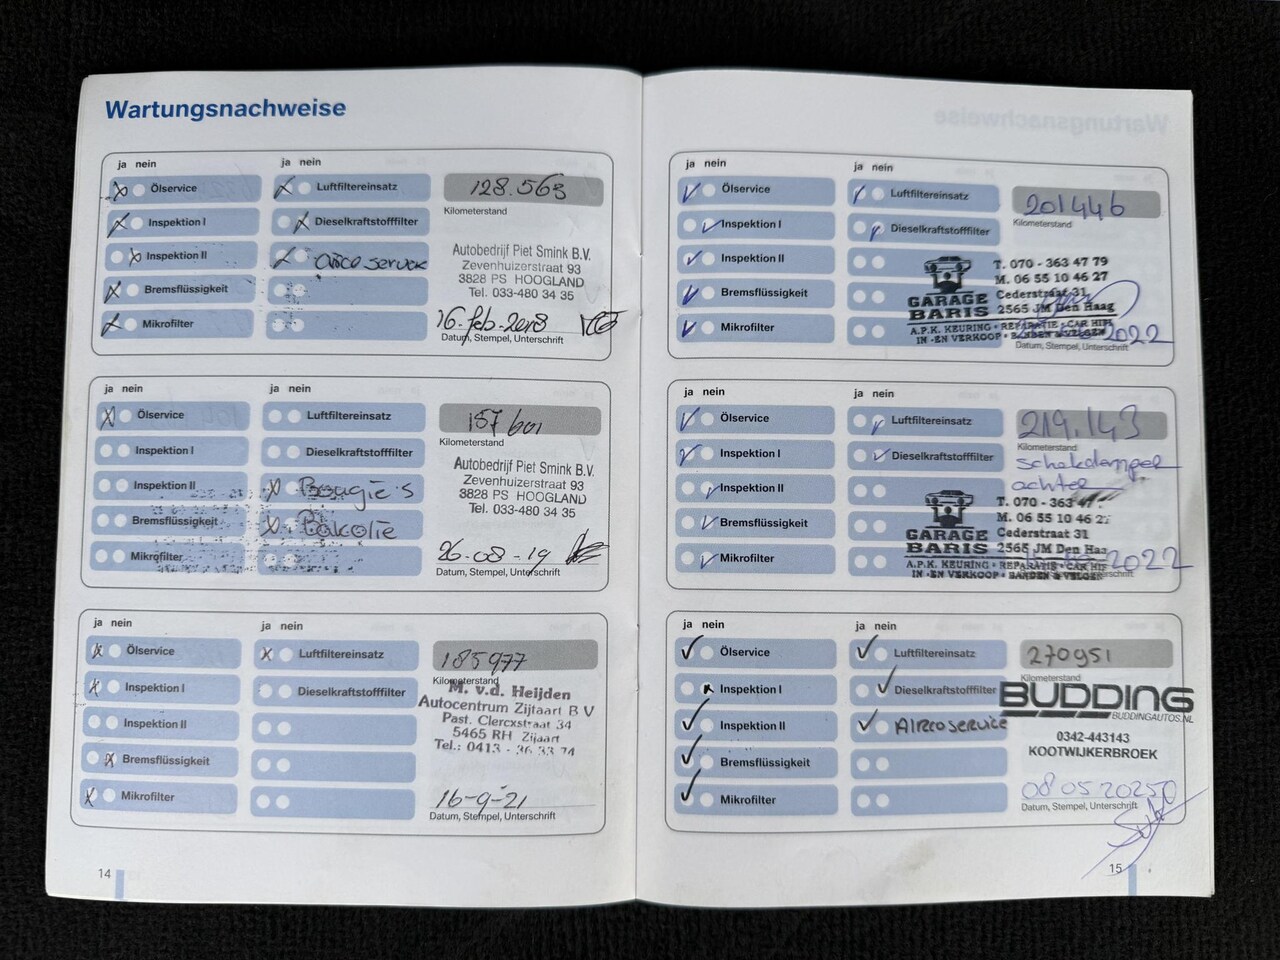 Wartungsnachweise
ja nein
ja nein
Ölservice
Luftfiltereinsatz
128.563
Kilometerstand
Inspektion I
Dieselkraftstofffilter
Inspektion II
airco service
Bremsflüssigkeit
Mikrofilter
Autobedrijf Piet Smink B.V.
Zevenhuizerstraat 93
3828 PS HOOGLAND
Tel. 033-480 34 35
16-feb-2018
Datum, Stempel, Unterschrift
ja nein
ja nein
Ölservice
Luftfiltereinsatz
157601
Kilometerstand
Inspektion I
Dieselkraftstofffilter
Inspektion II
Bougie's
Bremsflüssigkeit
Bakolie
Mikrofilter
Autobedrijf Piet Smink B.V.
Zevenhuizerstraat 93
3828 PS HOOGLAND
Tel. 033-480 34 35
26-08-19
Datum, Stempel, Unterschrift
ja nein
ja nein
Ölservice
Luftfiltereinsatz
185977
Kilometerstand
Inspektion I
Dieselkraftstofffilter
Inspektion II
Bremsflüssigkeit
Mikrofilter
M. v.d. Heijden
Autocentrum Zijtaart B V
Past. Clercxstraat 34
5465 RH Zijaart
Tel.: 0413 - 36 33 74
16-9-21
Datum, Stempel, Unterschrift
14
ja nein
ja nein
Ölservice
Luftfiltereinsatz
201446
Kilometerstand
Inspektion I
Dieselkraftstofffilter
Inspektion II
Bremsflüssigkeit
Mikrofilter
GARAGE
BARIS
T. 070 - 363 47 79
M. 06 55 10 46 27
Cederstraat 31
2565 JM Den Haag
A.P.K. KEURING • REPARATIE • CAR HIFI
IN -EN VERKOOP • BANDEN & VELGEN
2022
Datum, Stempel, Unterschrift
ja nein
ja nein
Ölservice
Luftfiltereinsatz
219.143
Kilometerstand
Inspektion I
Dieselkraftstofffilter
schokdemper
achter
Inspektion II
Bremsflüssigkeit
Mikrofilter
GARAGE
BARIS
T. 070 - 363 47
M. 06 55 10 46 27
Cederstraat 31
2565 JM Den Haa
A.P.K. KEURING • REPARATIE • CAR HIF
IN -EN VERKOOP • BANDEN & VELGEN
2022
schrift
ja nein
ja nein
Ölservice
Luftfiltereinsatz
270951
Kilometerstand
Inspektion I
Dieselkraftstofffilter
Inspektion II
AIRCO SERVICE
Bremsflüssigkeit
Mikrofilter
BUDDING
BUDDINGAUTOS.NL
0342-443143
KOOTWIJKERBROEK
08 05 2025
Datum, Stempel, Unterschrift
15